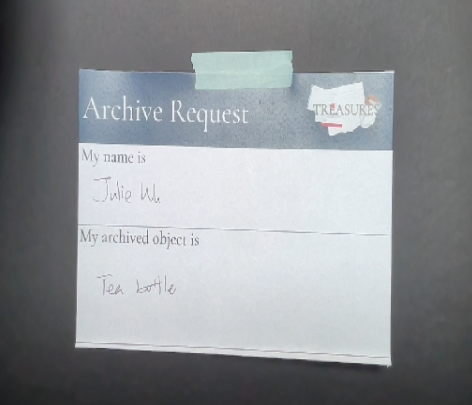 Archive Request
TREASURES
My name is
Julie Wu
My archived object is
Tea bottle